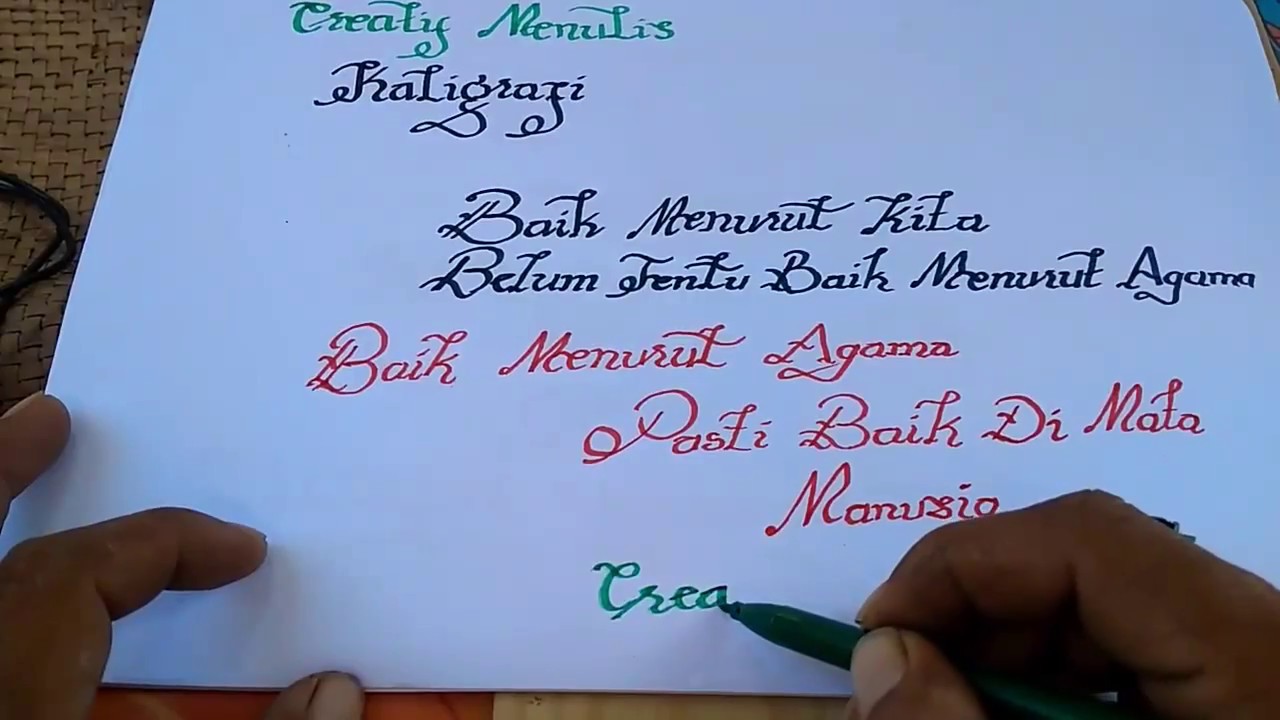 Creaty Menulis
Kaligrafi
Baik Menurut Kita
Belum Tentu Baik Menurut Agama
Baik Menurut Agama
Pasti Baik Di Mata
Manusia
Crea